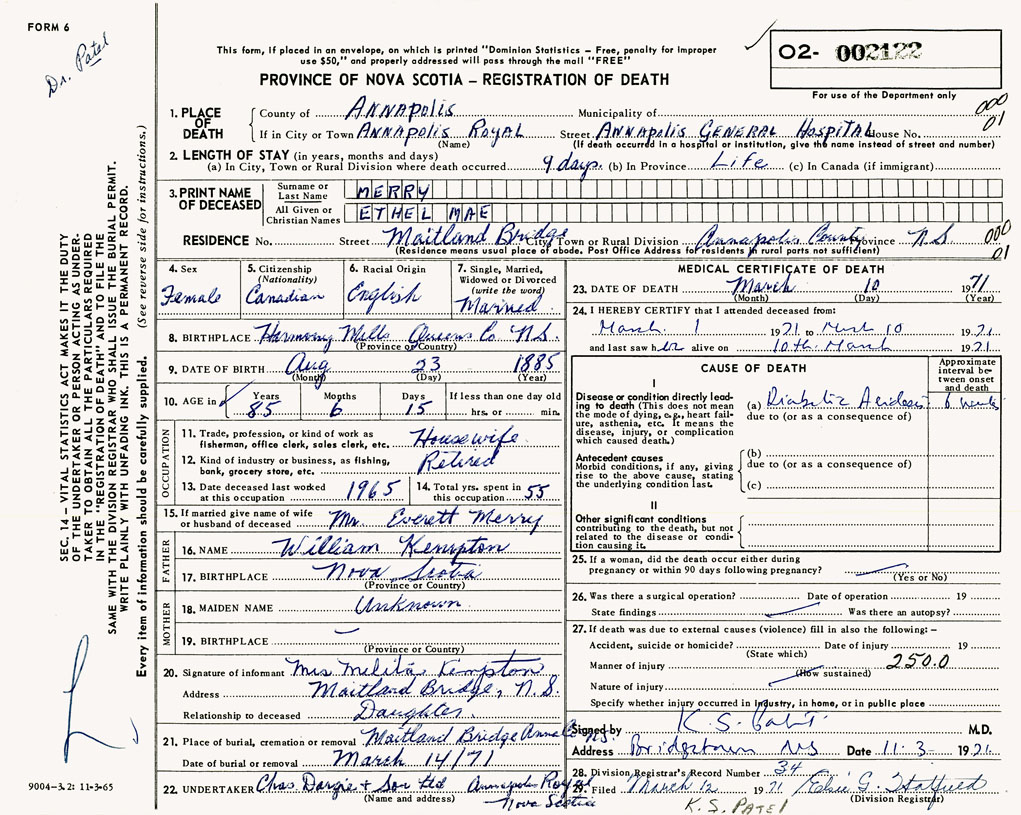 FORM 6
Dr. Patel
This form, if placed in an envelope, on which is printed "Dominion Statistics – Free, penalty for improper
use $50," and properly addressed will pass through the mail "FREE"
PROVINCE OF NOVA SCOTIA – REGISTRATION OF DEATH
O2- 002122
For use of the Department only
1. PLACE OF DEATH
County of Annapolis Municipality of 000
If in City or Town Annapolis Royal Street Annapolis General Hospital House No. 01
(Name) (If death occurred in a hospital or institution, give the name instead of street and number)
2. LENGTH OF STAY (in years, months and days)
(a) In City, Town or Rural Division where death occurred 9 days. (b) In Province Life (c) In Canada (if immigrant)
3. PRINT NAME OF DECEASED
Surname or Last Name MERRY
All Given or Christian Names ETHEL MAE
RESIDENCE No. Street Maitland Bridge City, Town or Rural Division Annapolis County Province N.S. 000
(Residence means usual place of abode. Post Office Address for residents in rural parts not sufficient) 01
4. Sex Female
5. Citizenship (Nationality) Canadian
6. Racial Origin English
7. Single, Married, Widowed or Divorced (write the word) Married
8. BIRTHPLACE Harmony Mills Queens Co N.S.
(Province or Country)
9. DATE OF BIRTH Aug 23 1885
(Month) (Day) (Year)
10. AGE in Years 85 Months 6 Days 15 If less than one day old hrs. or min.
OCCUPATION
11. Trade, profession, or kind of work as fisherman, office clerk, sales clerk, etc. Housewife
12. Kind of industry or business, as fishing, bank, grocery store, etc. Retired
13. Date deceased last worked at this occupation 1965
14. Total yrs. spent in this occupation 55
15. If married give name of wife or husband of deceased Mr. Everett Merry
FATHER
16. NAME William Kempton
17. BIRTHPLACE Nova Scotia
(Province or Country)
MOTHER
18. MAIDEN NAME Unknown
19. BIRTHPLACE
(Province or Country)
20. Signature of informant Mrs Melita Kempton
Address Maitland Bridge, N.S.
Relationship to deceased Daughter
21. Place of burial, cremation or removal Maitland Bridge Anna Co N.S.
Date of burial or removal March 14/71
22. UNDERTAKER Chas Dargie + Son Ltd Annapolis Royal
(Name and address) Nova Scotia
MEDICAL CERTIFICATE OF DEATH
23. DATE OF DEATH March 10 1971
(Month) (Day) (Year)
24. I HEREBY CERTIFY that I attended deceased from:
March 1 1971 to March 10 1971
and last saw her alive on 10th March 1971
CAUSE OF DEATH
Approximate interval between onset and death
I
Disease or condition directly leading to death (This does not mean the mode of dying, e.g., heart failure, asthenia, etc. It means the disease, injury, or complication which caused death.)
(a) Diabetic Acidosis 6 weeks
due to (or as a consequence of)
Antecedent causes
Morbid conditions, if any, giving rise to the above cause, stating the underlying condition last.
(b)
due to (or as a consequence of)
(c)
II
Other significant conditions
contributing to the death, but not related to the disease or condition causing it.
25. If a woman, did the death occur either during
pregnancy or within 90 days following pregnancy?
(Yes or No)
26. Was there a surgical operation? Date of operation 19
State findings Was there an autopsy?
27. If death was due to external causes (violence) fill in also the following: –
Accident, suicide or homicide? Date of injury 19
(State which)
Manner of injury 250.0
(How sustained)
Nature of injury
Specify whether injury occurred in industry, in home, or in public place
Signed by K. S. Patel M.D.
Address Bridgetown NS Date 11.3 1971
28. Division Registrar's Record Number 34
29. Filed March 12 1971
(Division Registrar)
K. S. PATEL
SEC. 14 – VITAL STATISTICS ACT MAKES IT THE DUTY
OF THE UNDERTAKER OR PERSON ACTING AS UNDER-
TAKER TO OBTAIN ALL THE PARTICULARS REQUIRED
IN THE "REGISTRATION OF DEATH" AND TO FILE THE
SAME WITH THE DIVISION REGISTRAR WHO SHALL ISSUE THE BURIAL PERMIT.
WRITE PLAINLY WITH UNFADING INK. THIS IS A PERMANENT RECORD.
Every item of information should be carefully supplied. (See reverse side for instructions.)
9004-3.2: 11-3-65